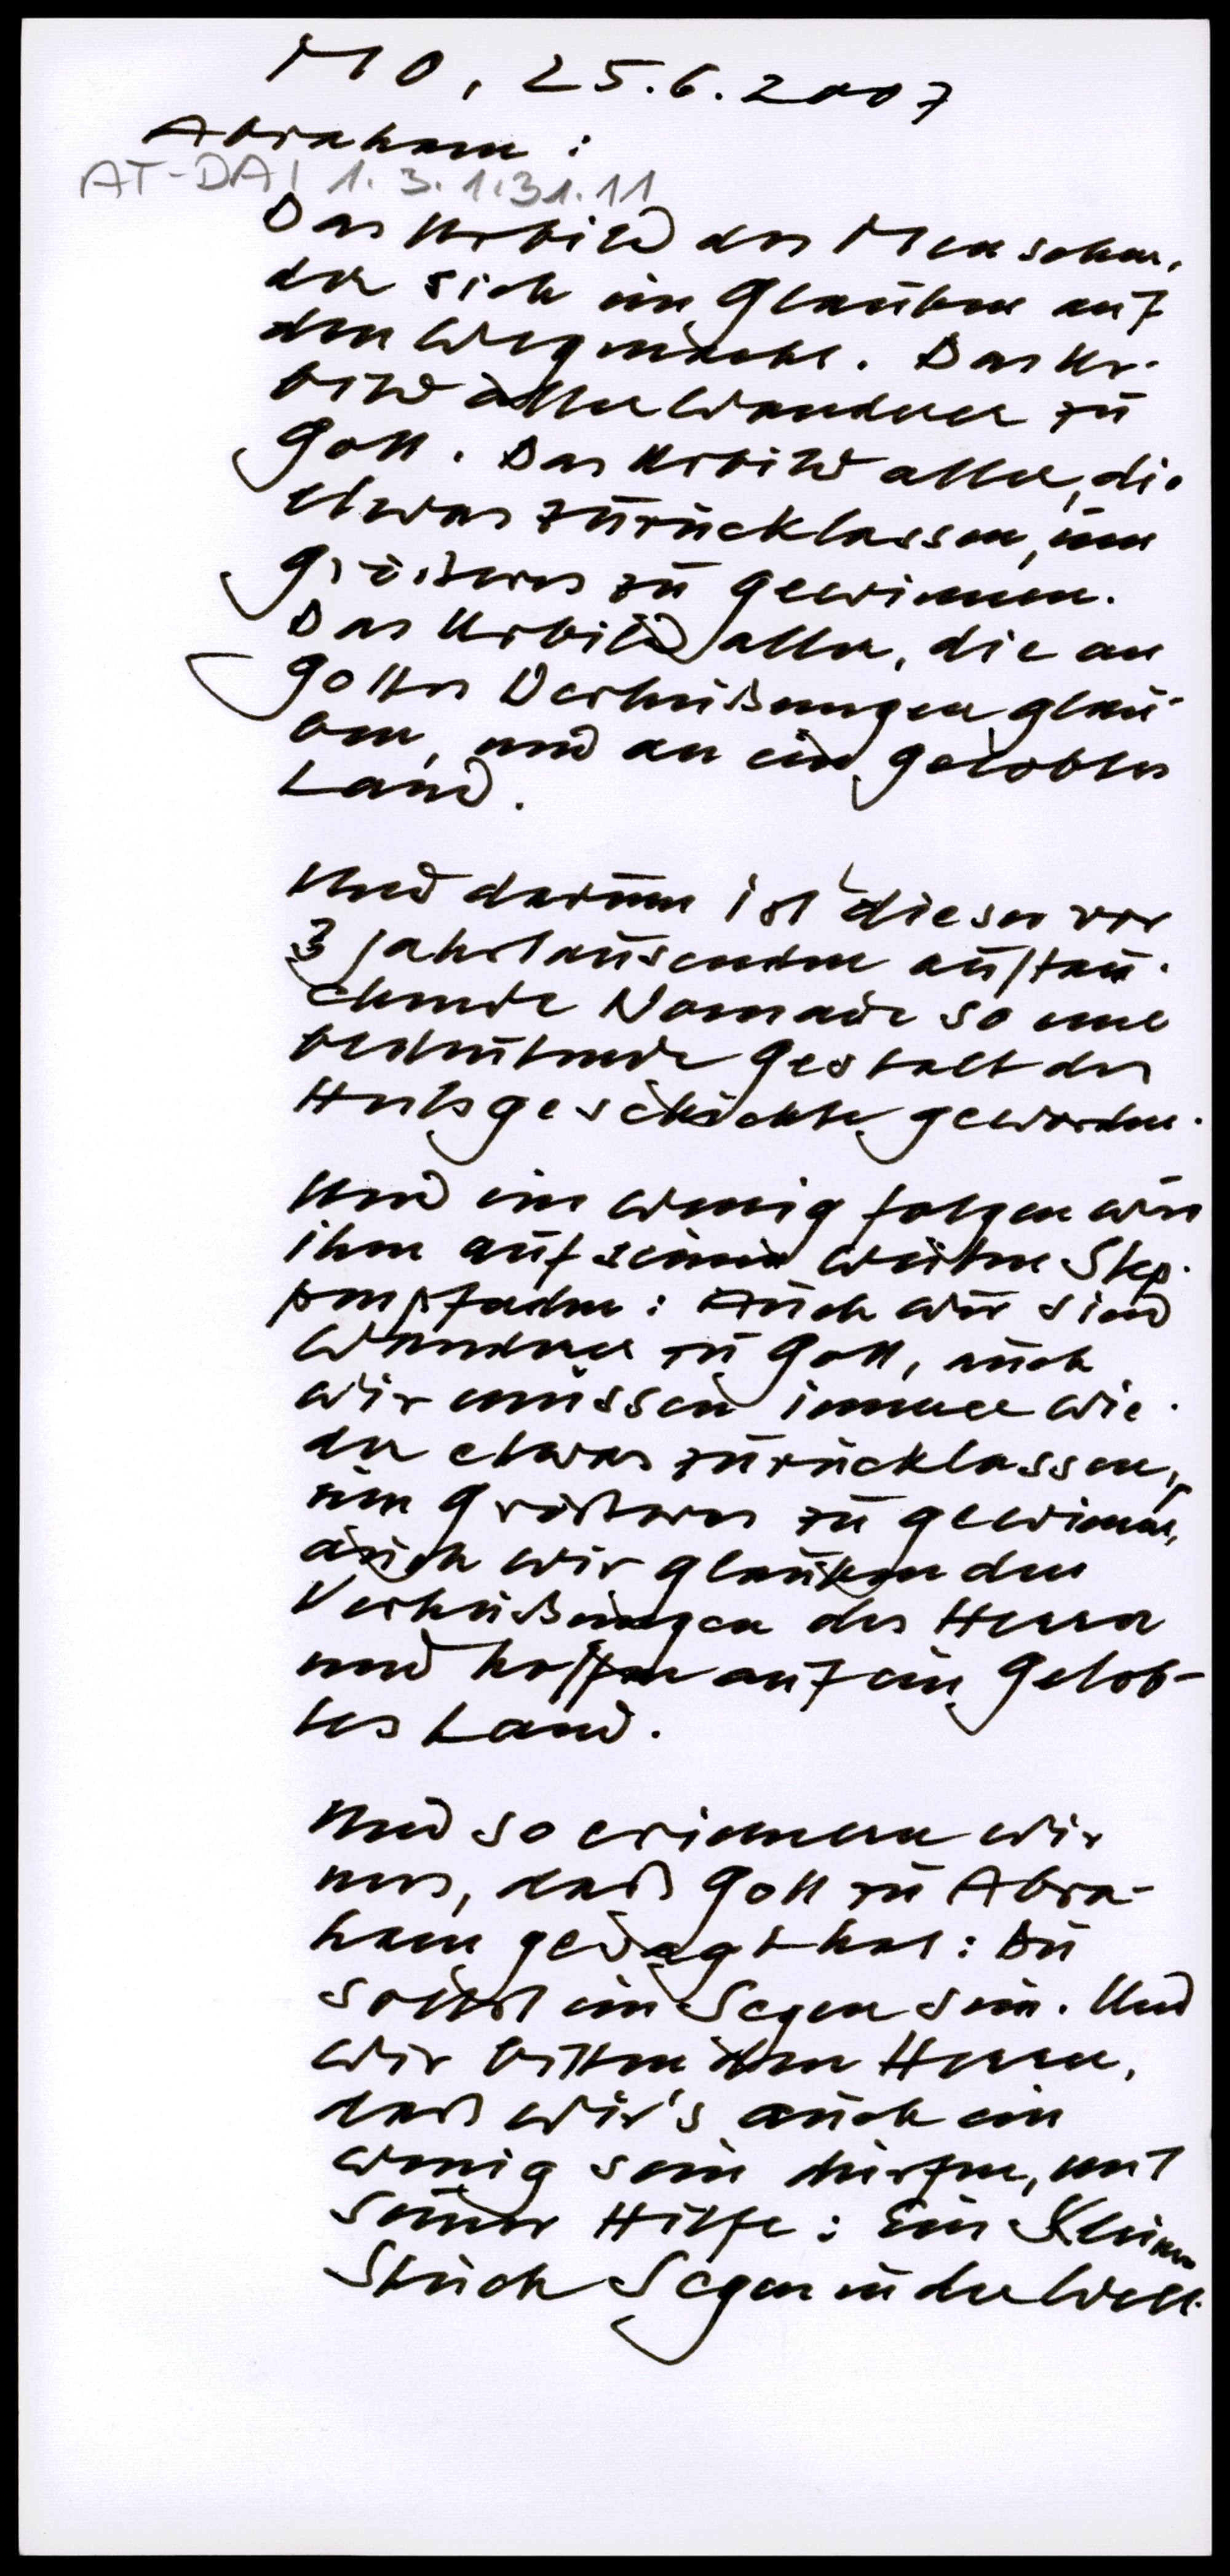 MO, 25.6.2007
Abraham:
AT-DA| 1.3.1.31.11
Das Urbild des Menschen,
der sich im Glauben auf
den Weg macht. Das Ur-
bild aller Wanderer zu
Gott. Das Urbild aller, die
etwas zurücklassen, um
Größeres zu gewinnen.
Das Urbild aller, die an
Gottes Verheißungen glau-
ben, und an ein gelobtes
Land.
Und darum ist dieser vor
3 Jahrtausenden auftau-
chende Nomade so eine
bedeutende Gestalt der
Heilsgeschichte geworden.
Und ein wenig folgen wir
ihm auf seinen weiten Step-
penpfaden: Auch wir sind
Wanderer zu Gott, auch
wir müssen immer wie-
der etwas zurücklassen,
um Größeres zu gewinnen,
auch wir glauben den
Verheißungen des Herrn
und hoffen auf ein Gelob-
tes Land.
Und so erinnern wir
uns, daß Gott zu Abra-
ham gesagt hat: Du
sollst ein Segen sein. Und
wir bitten den Herrn,
daß wir's auch ein
wenig sein dürfen, mit
Seiner Hilfe: Ein kleines
Stück Segen in der Welt.